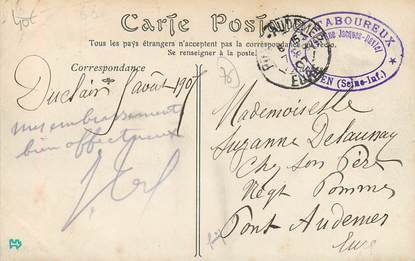 Carte Postale
Tous les pays étrangers n'acceptent pas la correspondance au recto.
Se renseigner à la poste.
Correspondance
Duclair 5 août 190
mes embrassements
bien affectueux
PONT-AUDEMER
EURE
LABOUREUX
Jacques
ROUEN (Seine-Inf.)
Mademoiselle
Suzanne Delaunay
Chez son Père
Négt Pommes
Pont Audemer
Eure